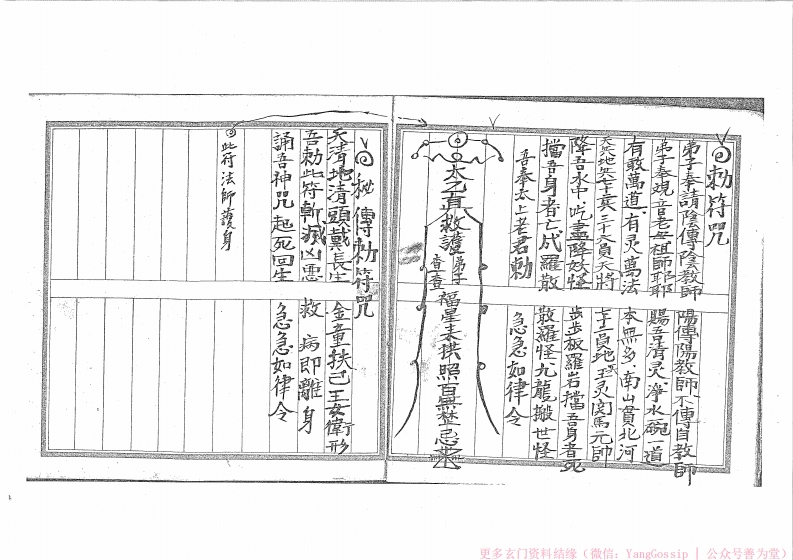 勅符咒
弟子奉請陰傳陰教師 陽傳陽教師不傳自教師
弟子奉观音老母祖師耶耶 賜吾清灵净水碗一道
有敢萬道有灵萬法 本無多南山貫北河
天煞地煞七十二 三十六員天將 七十二員地 王灵関馬元帥
降吾水中吃盡降妖怪 步步板羅岩擋吾身者死
擋吾身者亡成羅散 散羅怪九龍搬世怪
吾奉太上老君勅 急急如律令
太乙真救護弟子查查福星来拱照百無禁忌
秘傳勅符咒
天清地清頭戴長生 金童扶己玉女衛形
吾勅此符斬滅凶悪 救病即離身
誦吾神咒起死回生 急急如律令
此符法師護身
更多玄门资料结缘（微信：YangGossip | 公众号善为堂）